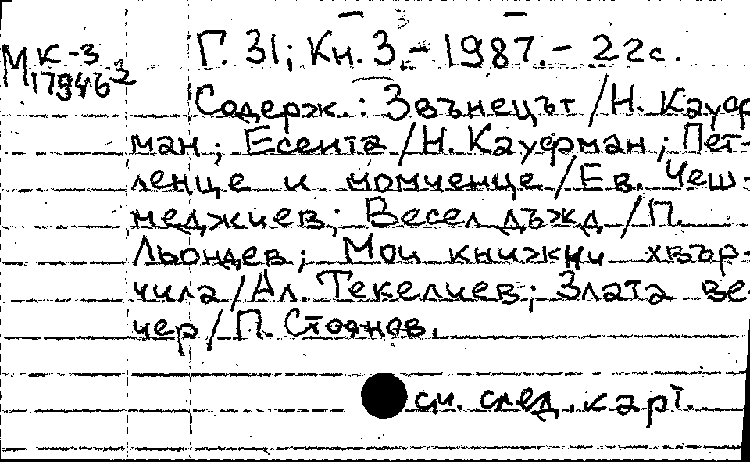 МК-3
17946²
Г. 31; Кн. 3.- 1987.- 22с.
Содерж.: Звънецът /Н. Кауф
ман; Есента /Н. Кауфман; Пет-
ленце и момченце /Ев. Чеш-
меджиев; Весел дъжд /П.
Льондев; Мои книжни хвър-
чила /Ал. Текелиев; Злата ве-
чер /П. Стоянов.
см. след. карт.